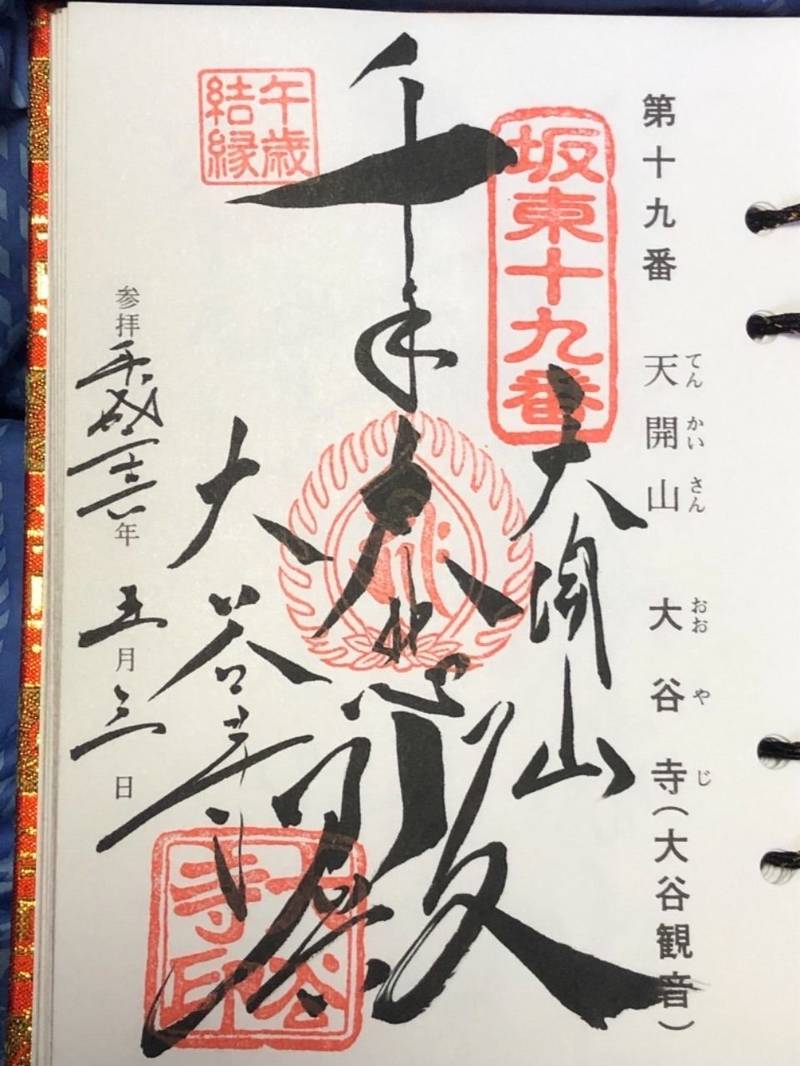 第十九番 天開山 大谷寺(大谷観音)
てん かい さん おお や じ
坂東十九番
天開山
千手大悲殿
午歳
結縁
大谷寺
大谷
寺印
参拝 平成二十六年 五月三日